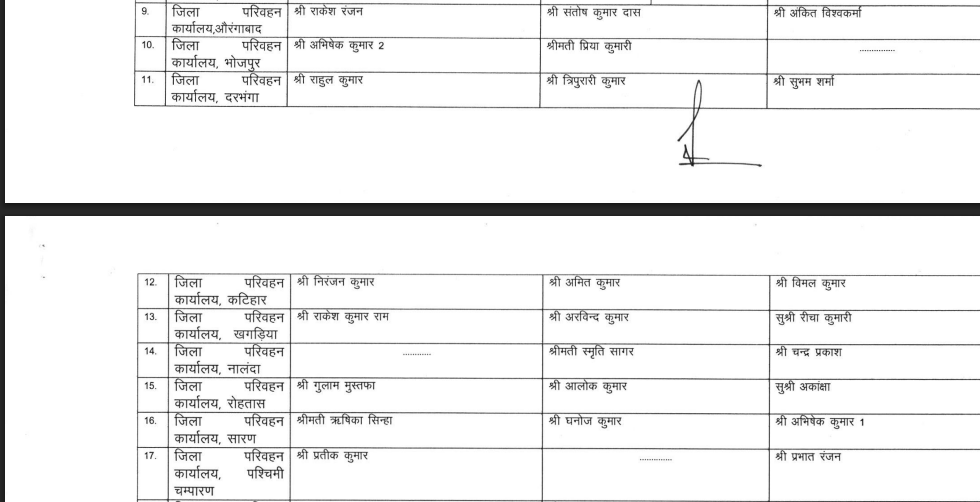 9. जिला परिवहन श्री राकेश रंजन श्री संतोष कुमार दास श्री अंकित विश्वकर्मा
कार्यालय,औरंगाबाद
10. जिला परिवहन श्री अभिषेक कुमार 2 श्रीमती प्रिया कुमारी ...............
कार्यालय, भोजपुर
11. जिला परिवहन श्री राहुल कुमार श्री त्रिपुरारी कुमार श्री सुभम शर्मा
कार्यालय, दरभंगा
12. जिला परिवहन श्री निरंजन कुमार श्री अमित कुमार श्री विमल कुमार
कार्यालय, कटिहार
13. जिला परिवहन श्री राकेश कुमार राम श्री अरविन्द कुमार सुश्री रीचा कुमारी
कार्यालय, खगड़िया
14. जिला परिवहन ............ श्रीमती स्मृति सागर श्री चन्द्र प्रकाश
कार्यालय, नालंदा
15. जिला परिवहन श्री गुलाम मुस्तफा श्री आलोक कुमार सुश्री अकांक्षा
कार्यालय, रोहतास
16. जिला परिवहन श्रीमती ऋषिका सिन्हा श्री घनोज कुमार श्री अभिषेक कुमार 1
कार्यालय, सारण
17. जिला परिवहन श्री प्रतीक कुमार .............. श्री प्रभात रंजन
कार्यालय, पश्चिमी
चम्पारण